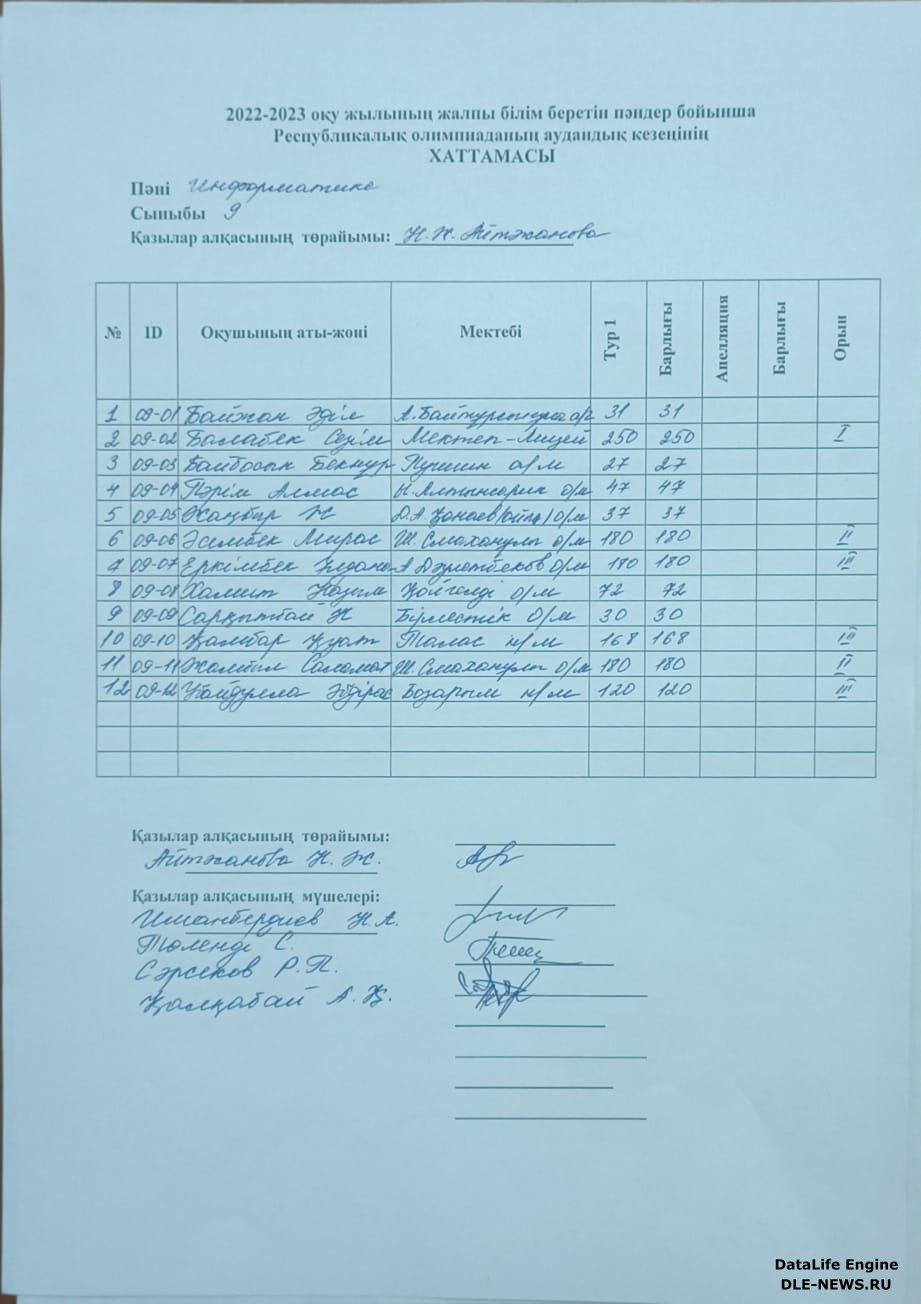 2022-2023 оқу жылының жалпы білім беретін пәндер бойынша
Республикалық олимпиаданың аудандық кезеңінің
ХАТТАМАСЫ
Пәні Информатика
Сыныбы 9
Қазылар алқасының төрайымы: Н.Ж. Айтжанова
№ ID Оқушының аты-жөні Мектебі Тур 1 Барлығы Апелляция Барлығы Орын
1 09-01 Байжан Әділ А.Байтұрсынұлы 31 31
2 09-02 Балабек Сезім Мектеп-Лицей 250 250 I
3 09-03 Байбосын Бекнұр Пушкин о/м 27 27
4 09-04 Пәрім Алмас Ы.Алтынсарин о/м 47 47
5 09-05 Жаңбыр Н Д.А Қонаев о/м 37 37
6 09-06 Әсембек Мирас Ш.Смаханұлы о/м 180 180 II
7 09-07 Еркімбек А Дәулетбеков о/м 180 180 III
8 09-08 Хамит Назым Қойгелді о/м 72 72
9 09-09 Сарқытбай Н Бірлестік о/м 30 30
10 09-10 Қамбар Қуат Талас н/м 168 168 III
11 09-11 Саламат Ш.Смаханұлы о/м 180 180 II
12 09-12 Ұбайдулла Бозарық н/м 120 120 III
Қазылар алқасының төрайымы:
Айтжанова Н. Ж.
Қазылар алқасының мүшелері:
Иманбердиев Н.А.
Төленді С.
Сәрсеков Р.П.
Қалқабай А.Қ.
DataLife Engine
DLE-NEWS.RU